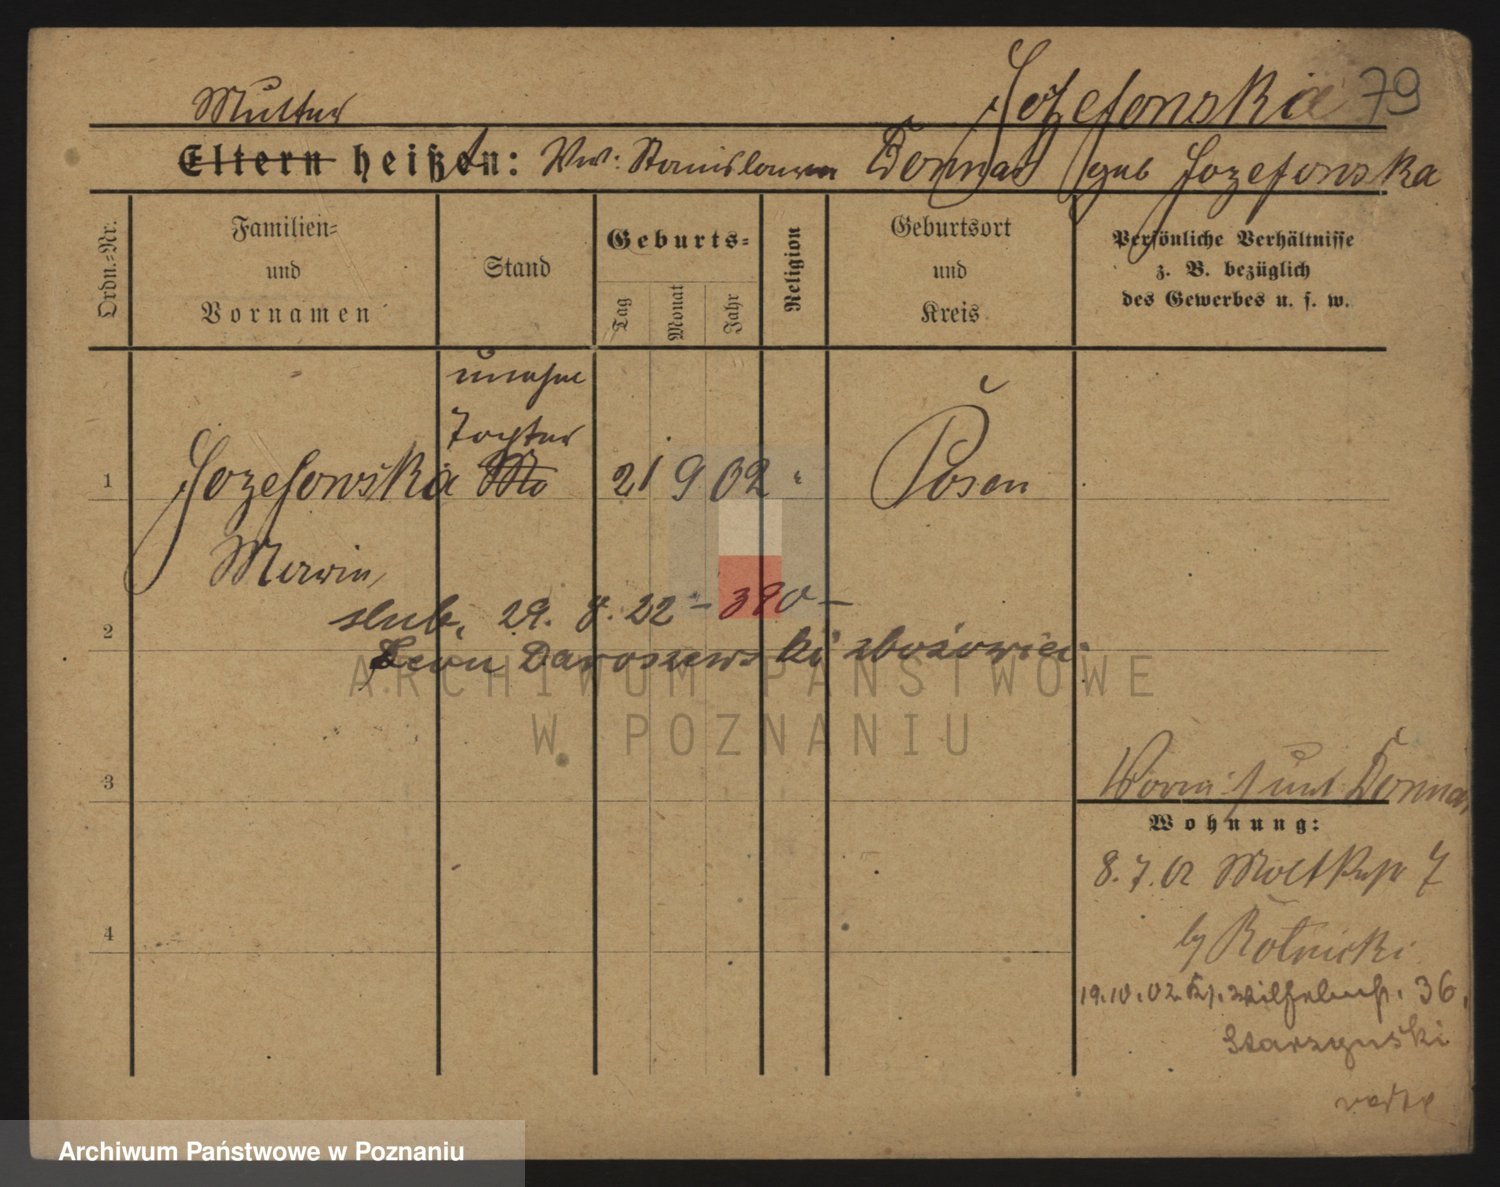 Jozefowska 79
Mutter
Eltern heißen: Ww: Stanislawa Donnas geb Jozefowska
Ordn.-Nr.
Familien-
und
Vornamen
Stand
Geburts-
Tag
Monat
Jahr
Religion
Geburtsort
und
Kreis
Persönliche Verhältnisse
z. B. bezüglich
des Gewerbes u. s. w.
unehel
Tochter
1 Jozefowska 21 9 02 " Posen
slub. 29. 8. 22 – 390 –
2
Leon Daroszewski
3
Wohnung:
8.7.02 Moltkestr 7
4
19.10.02 Wilhelmst. 36.
ARCHIWUM PAŃSTWOWE
W POZNANIU
Archiwum Państwowe w Poznaniu